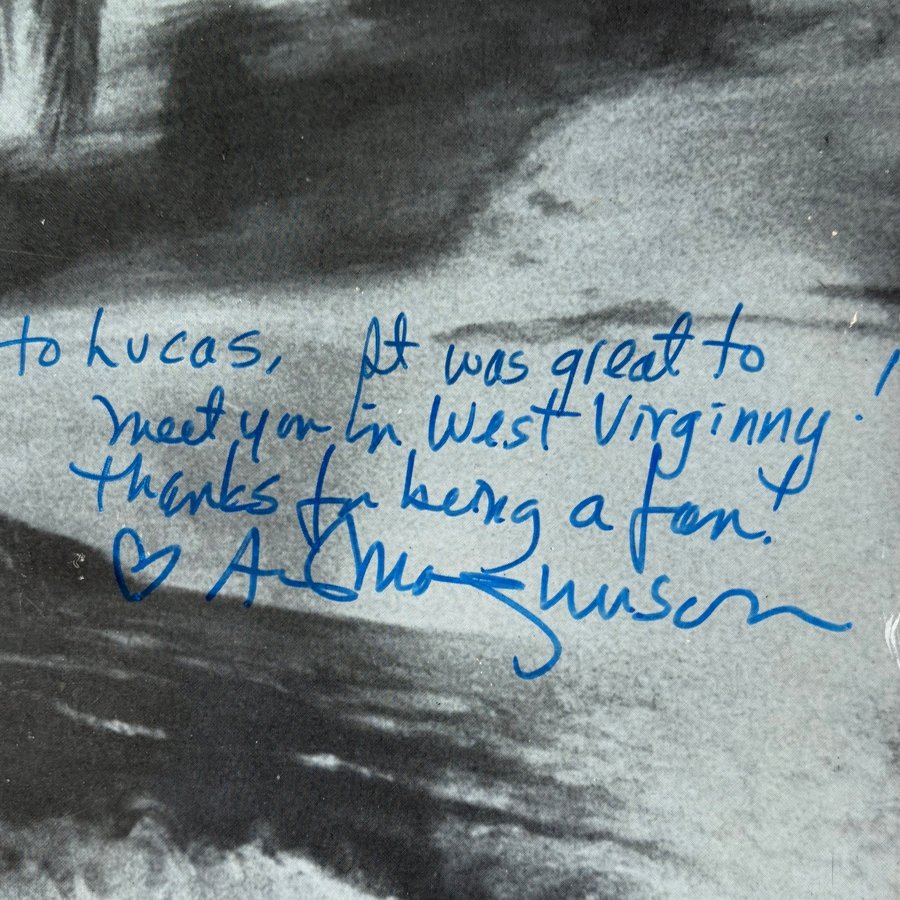 to Lucas, It was great to
meet you in West Virginny!
thanks for being a fan!
♡ Ann Magnuson